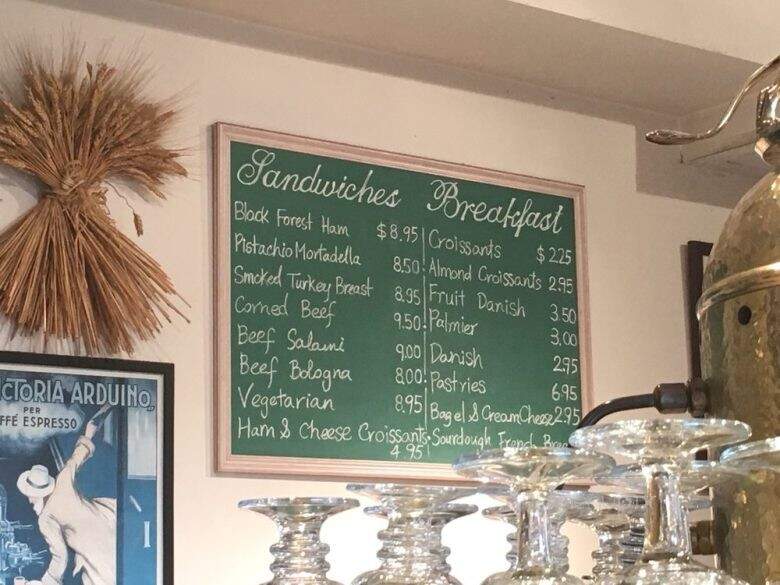 Sandwiches
Black Forest Ham $8.95
Pistachio Mortadella 8.50
Smoked Turkey Breast 8.95
Corned Beef 9.50
Beef Salami 9.00
Beef Bologna 8.00
Vegetarian 8.95
Ham & Cheese Croissants
4.95
Breakfast
Croissants $2.25
Almond Croissants 2.95
Fruit Danish 3.50
Palmier 3.00
Danish 2.95
Pastries 6.95
Bagel & Cream Cheese 2.95
Sourdough French
CTORIA ARDUINO
PER
FFÉ ESPRESSO